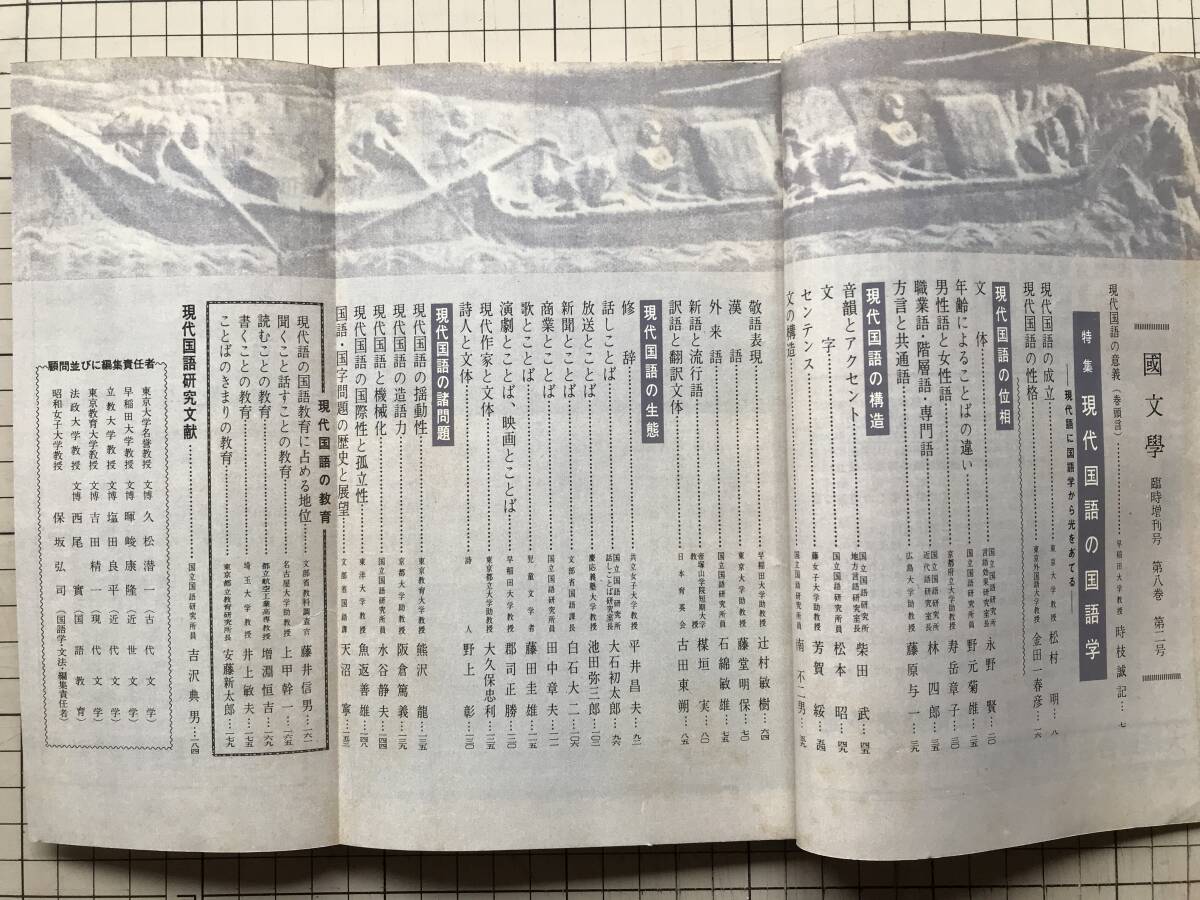 國文學 臨時増刊号 第八巻 第二号
特集 現代国語の国語学
――現代語に国語学から光をあてる――
現代国語の意義(巻頭言)…早稲田大学教授 時枝誠記…七
現代国語の成立…東京大学教授 松村明…八
現代国語の性格…東京外国語大学教授 金田一春彦…一六
現代国語の位相
文体…国立国語研究所言語効果研究室長 永野賢…二〇
年齢によることばの違い…国立国語研究所員 野元菊雄…二五
男性語と女性語…京都府立大学助教授 寿岳章子…三〇
職業語・階層語・専門語…国立国語研究所近代語研究室長 林四郎…三五
方言と共通語…広島大学助教授 藤原与一…三九
現代国語の構造
音韻とアクセント…国立国語研究所地方言語研究室長 柴田武…四五
文字…国立国語研究所員 松本昭…四九
センテンス…藤女子大学助教授 芳賀綏…五四
文の構造…国立国語研究所員 南不二男
敬語表現…早稲田大学助教授 辻村敏樹…六四
漢語…東京大学助教授 藤堂明保…七〇
外来語…国立国語研究所員 石綿敏雄…七五
新語と流行語…帝塚山学院短期大学教授 楳垣実…八〇
訳語と翻訳文体…日本育英会 古田東朔…八五
現代国語の生態
修辞…共立女子大学教授 平井昌夫…九二
話しことば…国立国語研究所話しことば研究室長 大石初太郎…九六
放送とことば…慶応義塾大学教授 池田弥三郎…一〇三
新聞とことば…文部省国語課長 白石大二…一〇六
商業とことば…国立国語研究所員 田中章夫…一一一
歌とことば…児童文学者 藤田圭雄…一一五
演劇とことば、映画とことば…早稲田大学教授 郡司正勝…一二〇
現代作家と文体…東京都立大学助教授 大久保忠利…一二五
詩人と文体…詩人 野上彰…一三〇
現代国語の諸問題
現代国語の揺動性…東京教育大学教授 熊沢龍…一三五
現代国語の造語力…京都大学助教授 阪倉篤義…一三九
現代国語と機械化…国立国語研究所員 水谷静夫
現代国語の国際性と孤立性…東洋大学教授 魚返善雄…一四八
国語・国字問題の歴史と展望…文部省国語課 天沼寧…一五三
現代国語の教育
現代語の国語教育に占める地位…文部省教科調査官 藤井信男…一六一
聞くこと話すことの教育…名古屋大学助教授 上甲幹一…一六五
読むことの教育…都立航空工業高専教授 増淵恒吉…一六九
書くことの教育…埼玉大学教授 井上敏夫…一七五
ことばのきまりの教育…東京都立教育研究所長 安藤新太郎…一七九
現代国語研究文献…国立国語研究所員 吉沢典男…一八四
顧問並びに編集責任者
東京大学名誉教授 文博 久松潜一(古代文学)
早稲田大学教授 文博 暉峻康隆(近世文学)
立教大学教授 文博 塩田良平(近代文学)
東京教育大学教授 文博 吉田精一(現代文学)
法政大学教授 西尾實(国語教育)
昭和女子大学教授 保坂弘司(国語学・文法・編集責任者)